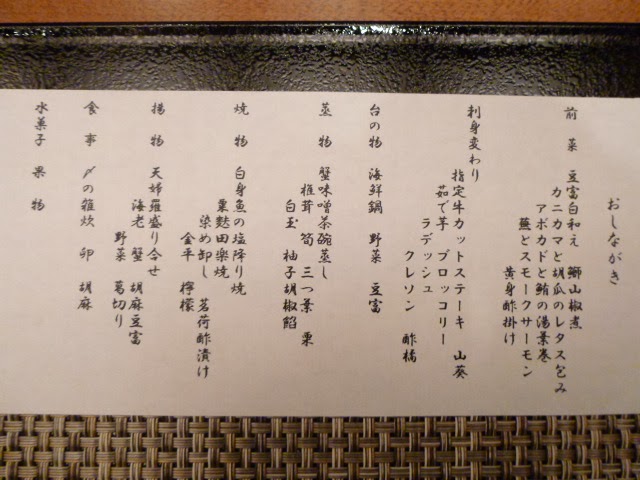 おしながき
前菜 豆富白和え 鰤山椒煮
カニカマと胡瓜のレタス包み
アボカドと鮪の湯葉巻
蕪とスモークサーモン
黄身酢掛け
刺身変わり
指定牛カットステーキ 山葵
茹で芋 ブロッコリー
ラデッシュ
クレソン 酢橘
台の物 海鮮鍋 野菜 豆富
蒸物 蟹味噌茶碗蒸し
椎茸 筍 三つ葉 栗
白玉 柚子胡椒餡
焼物 白身魚の塩降り焼
粟麩田楽焼
染め卸し 茗荷酢漬け
金平 檸檬
揚物 天婦羅盛り合せ
海老 蟹 胡麻豆富
野菜 葛切り
食事 〆の雑炊 卵 胡麻
水菓子 果物